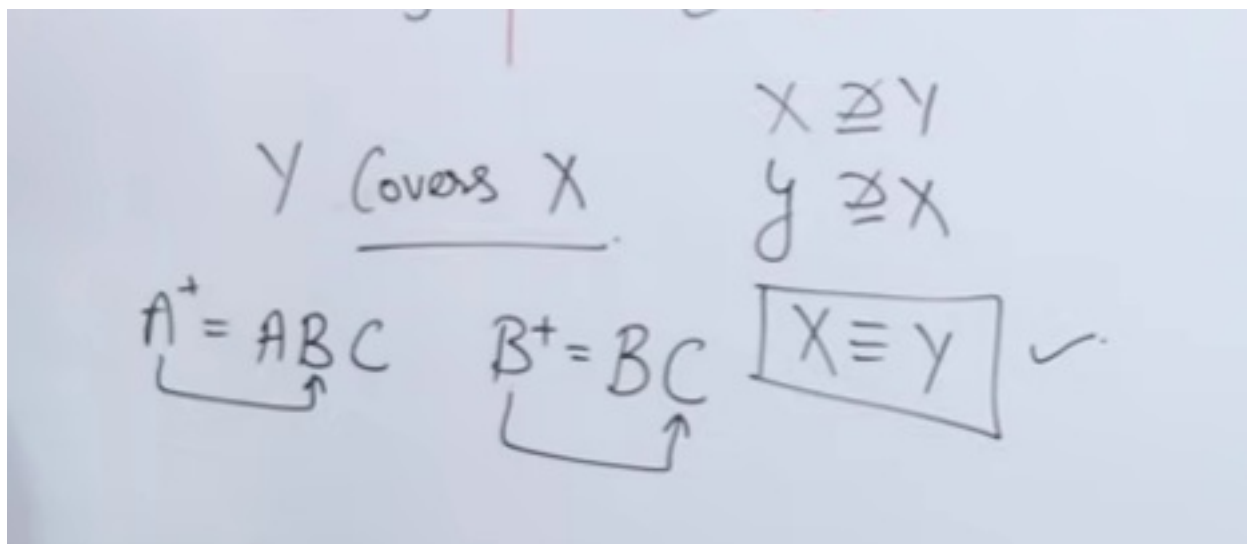 X ⊇ Y
Y Covers X
y ⊇ X
A⁺ = ABC
B⁺ = BC
X ≡ Y ✓